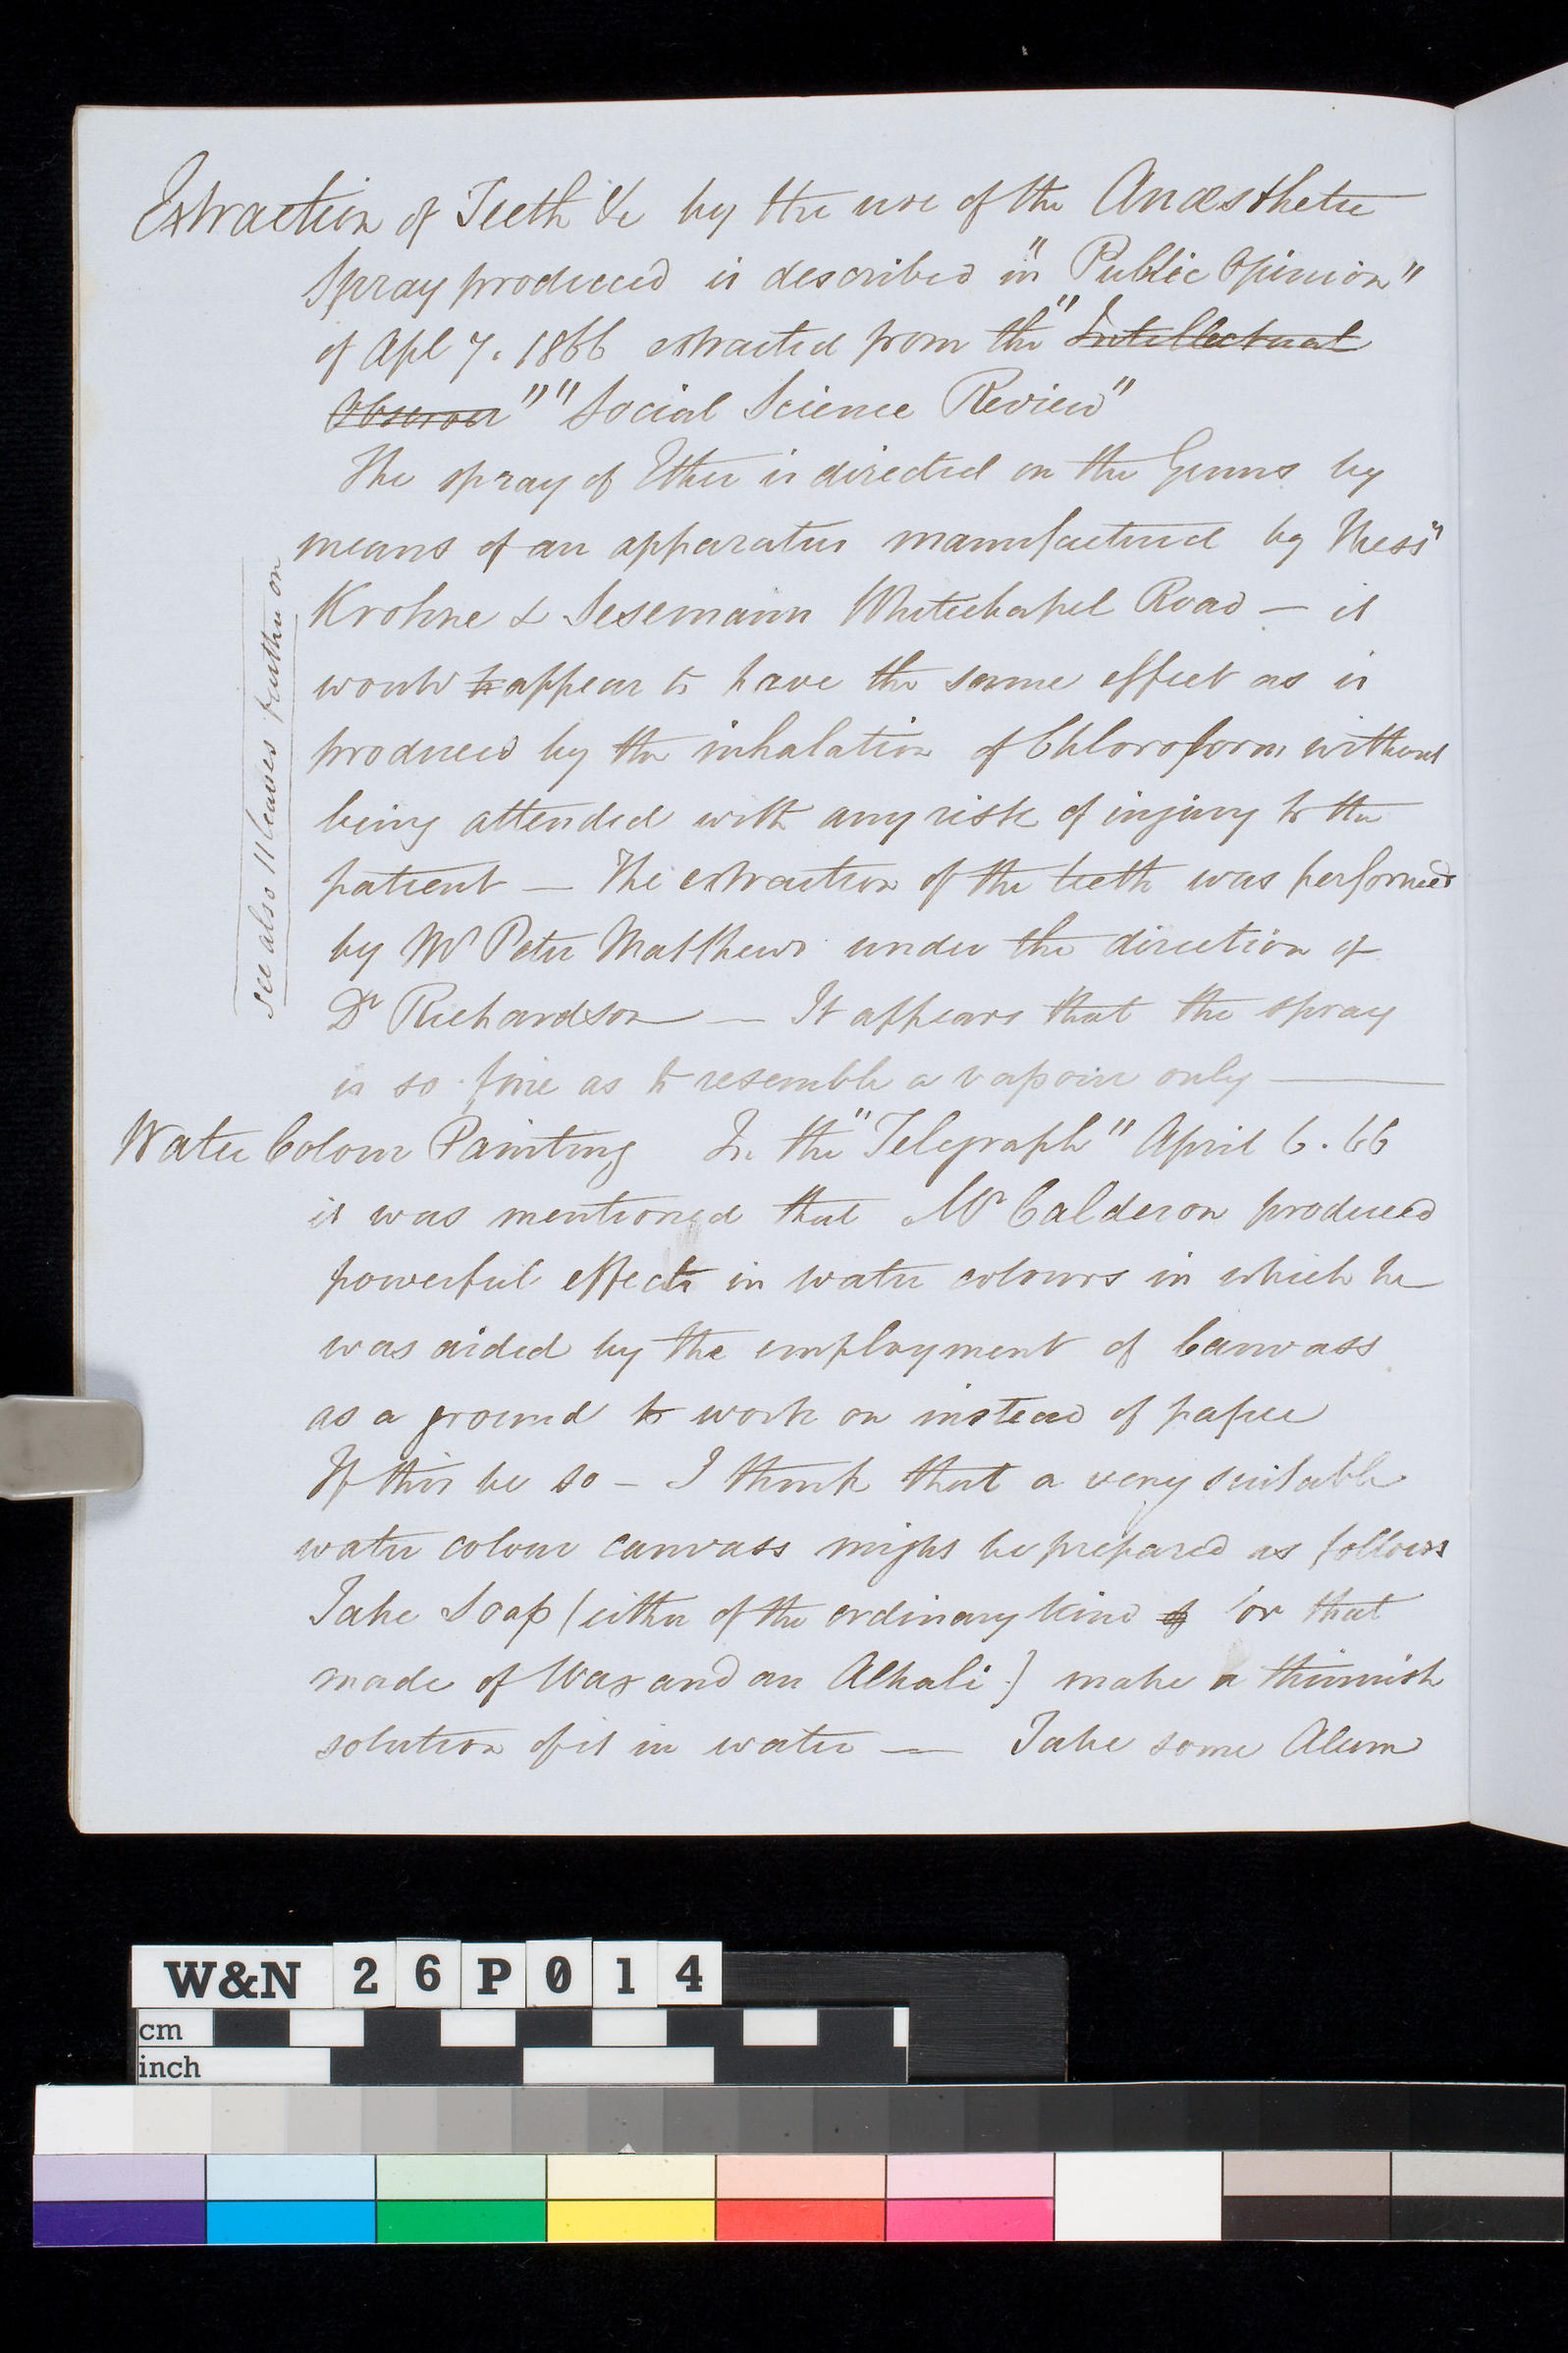 Extraction of Teeth &c by the use of the Anæsthetic
Spray produced is described in "Public Opinion"
of Apl 7. 1866 extracted from the "Intellectual
Observer" "Social Science Review"
The spray of Ether is directed on the Gums by
means of an apparatus manufactured by Mess"
Krohne & Sesemann Whitechapel Road — it
would to appear to have the same effect as is
produced by the inhalation of Chloroform without
being attended with any risk of injury to the
patient — The extraction of the teeth was performed
by Mr Peter Matthews under the direction of
Dr Richardson — It appears that the spray
is so fine as to resemble a vapour only —
see also 11 leaves further on
Water Colour Painting In the "Telegraph" April 6. 66
it was mentioned that Mr Calderon produced
powerful effects in water colours in which he
was aided by the employment of Canvass
as a ground to work on instead of paper
If this be so – I think that a very suitable
water colour canvass might be prepared as follows
Take Soap (either of the ordinary kind of or that
made of Wax and an Alkali) make a thinnish
solution of it in water — Take some Alum
W&N 26P014
cm
inch